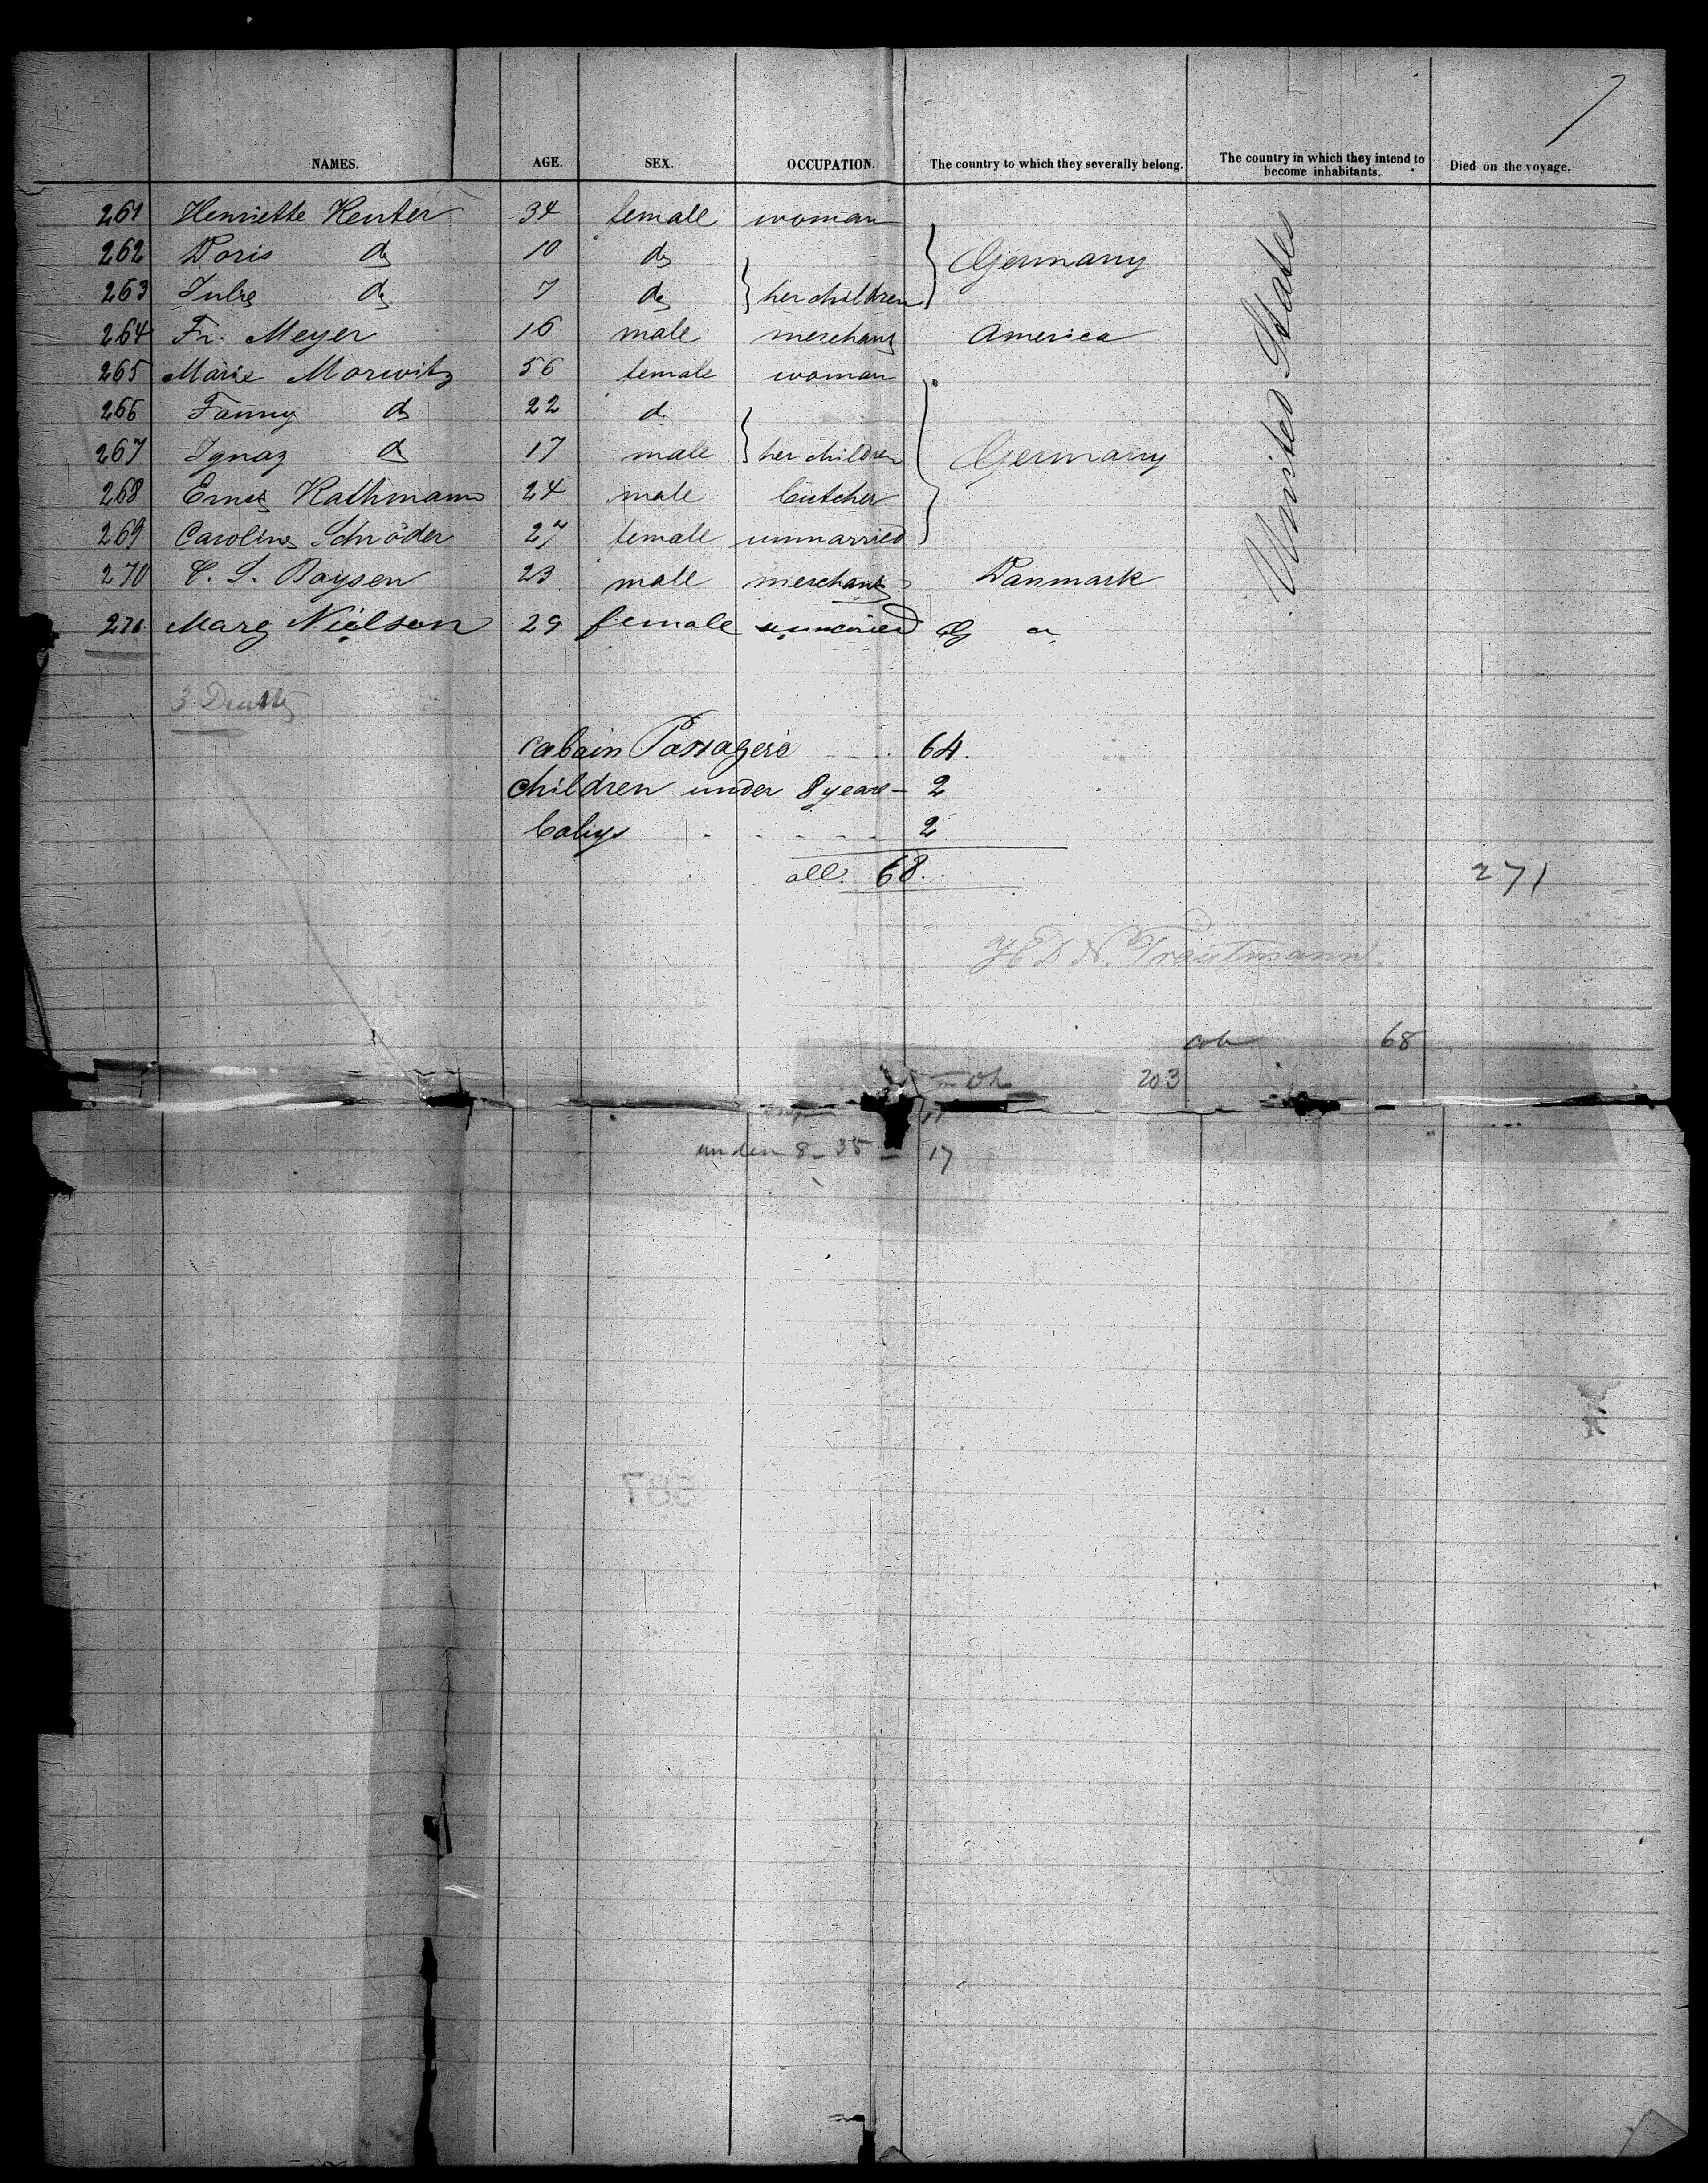 7
NAMES. AGE. SEX. OCCUPATION. The country to which they severally belong. The country in which they intend to become inhabitants. Died on the voyage.
261 Henriette Reuter 34 female woman
262 Doris do 10 do Germany
263 Jule do 7 do her children
264 Fr. Meyer 16 male merchant America
265 Marie Morwitz 56 female woman
266 Fanny do 22 do
267 Ignaz do 17 male her children Germany
268 Ernst Rathmann 24 male butcher
269 Caroline Schröder 27 female unmarried
270 C. S. Boysen 23 male merchant Danmark
271 Marg Nielson 29 female
United States
3 Deaths
Cabain Passagers 64.
Children under 8 years – 2
babys 2
all. 68.
271
H D N. Trautmann.
cab 68
203
under 8 – 35 – 17
587